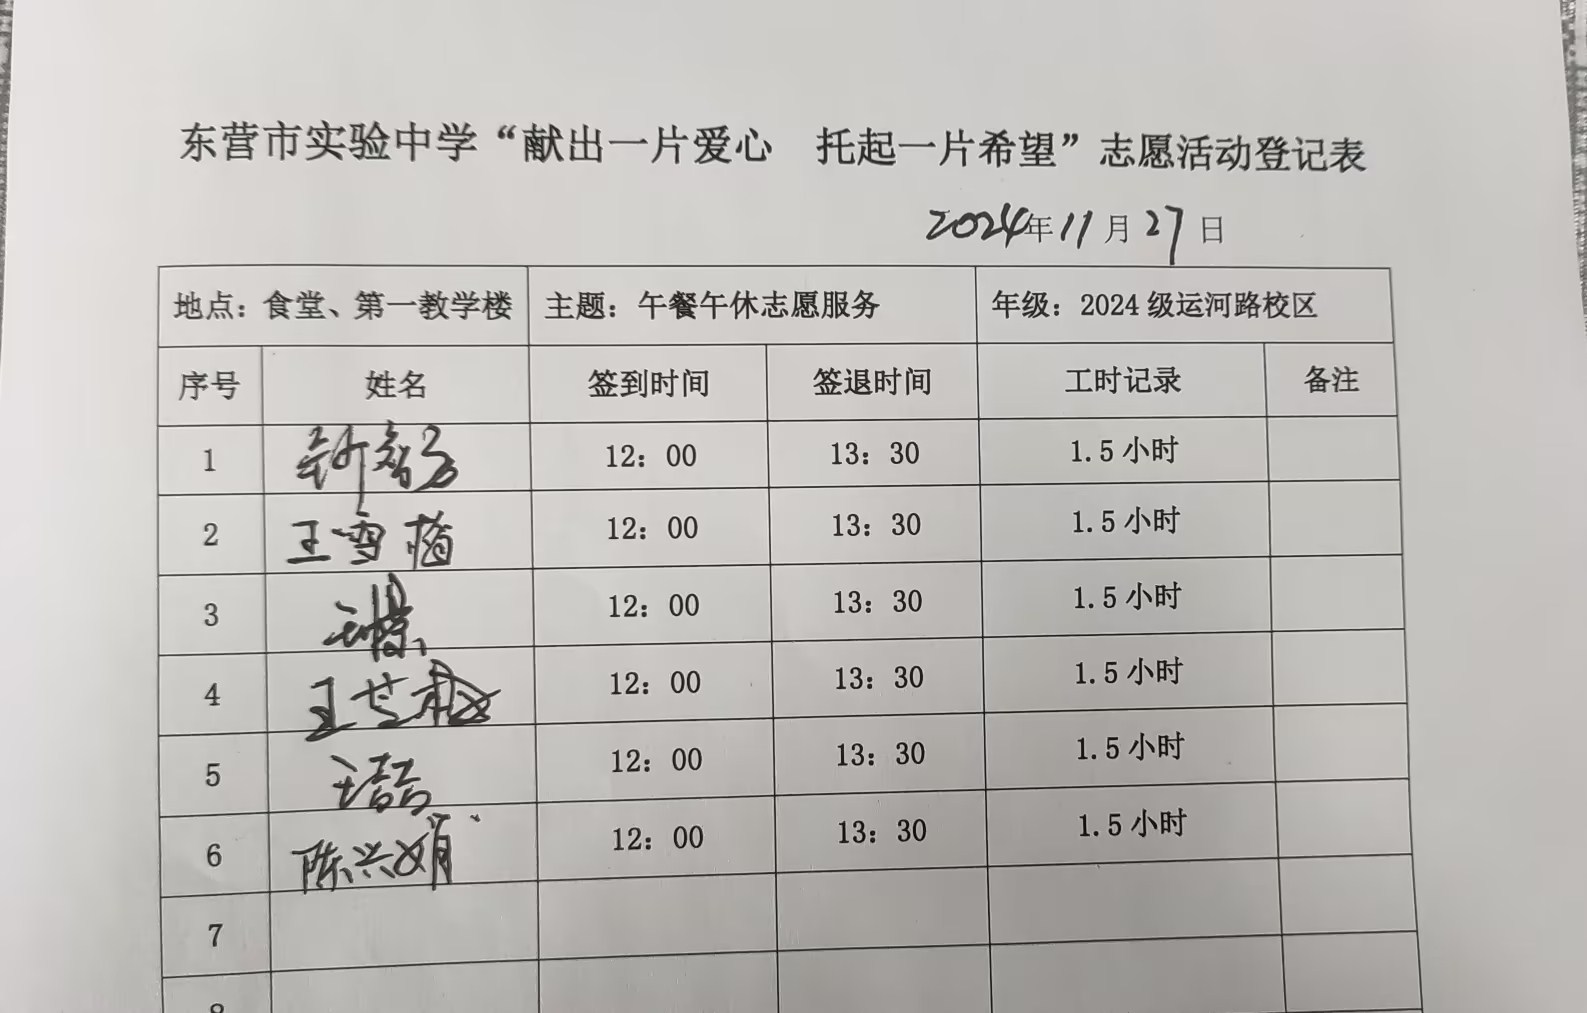 东营市实验中学“献出一片爱心 托起一片希望”志愿活动登记表
2024年11月27日
地点：食堂、第一教学楼 主题：午餐午休志愿服务 年级：2024级运河路校区
序号 姓名 签到时间 签退时间 工时记录 备注
1 12：00 13：30 1.5小时
2 王雪梅 12：00 13：30 1.5小时
3 12：00 13：30 1.5小时
4 王芝 12：00 13：30 1.5小时
5 12：00 13：30 1.5小时
6 陈兴娟 12：00 13：30 1.5小时
7
8